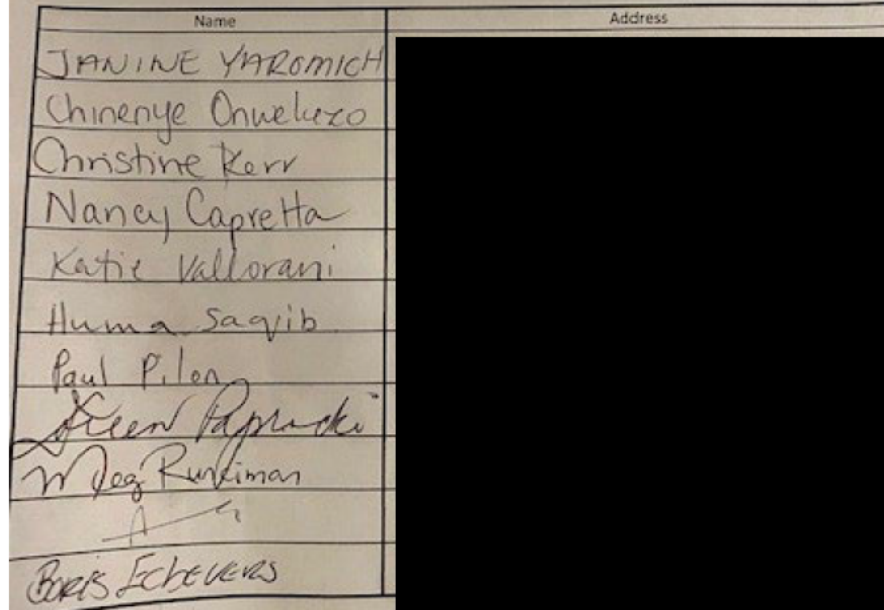 Name Address
JANINE YAROMICH
Chinenye Onweluzo
Christine Kerr
Nancy Capretta
Katie Vallorani
Huma Saqib
Paul Pilon
Meg Runciman
Boris Echevers